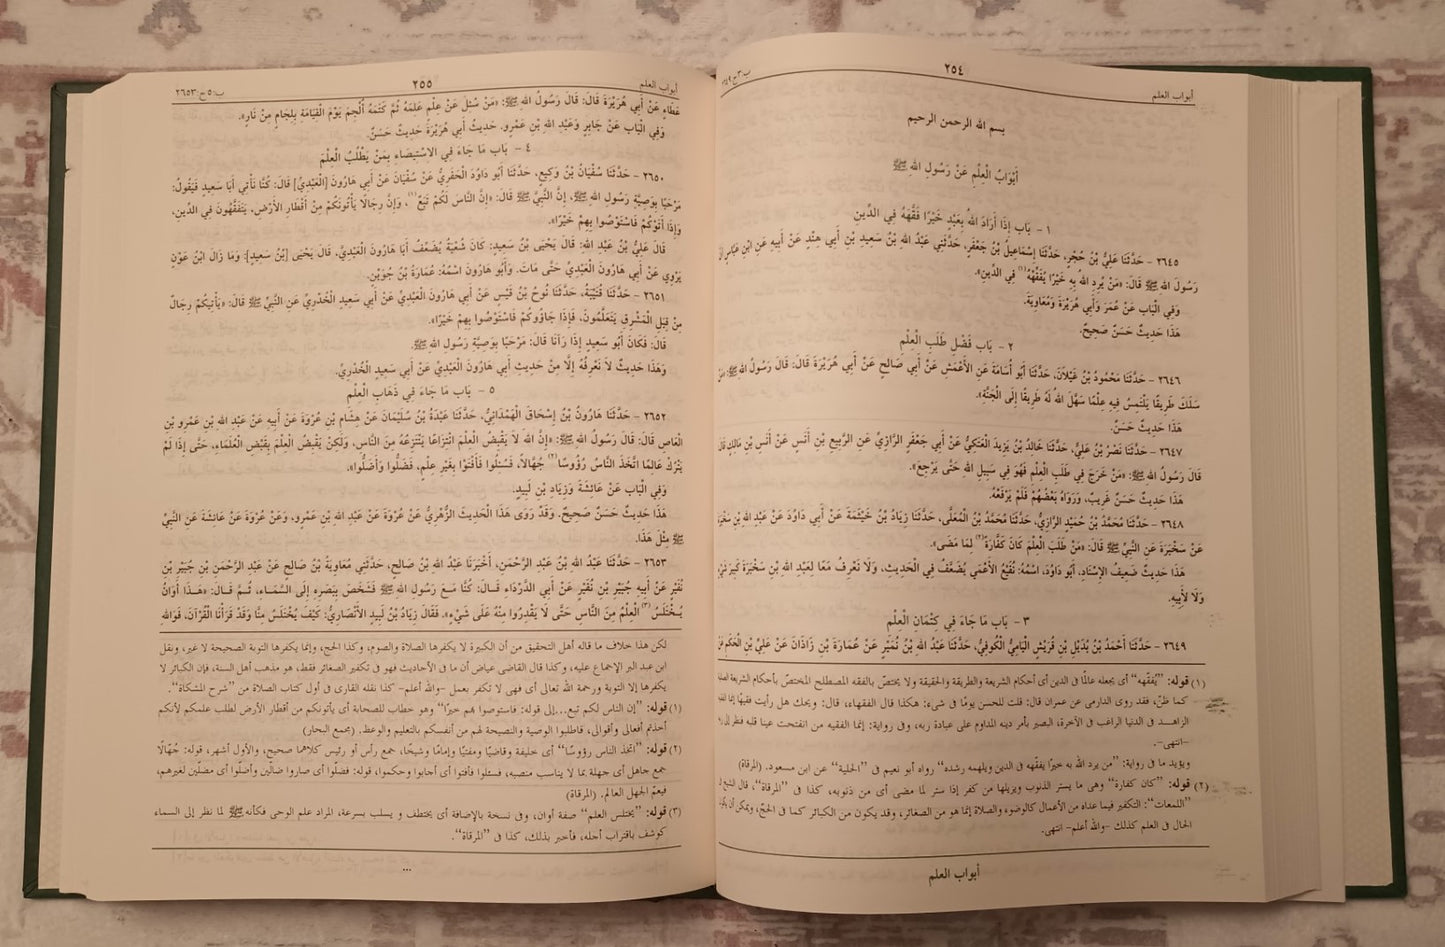 أبواب العلم
٢٥٤
ب:٣ ح:٢٦٤٩
بسم الله الرحمن الرحيم
أَبْوَابُ الْعِلْمِ عَنْ رَسُولِ اللهِ ﷺ
١ - بَاب إِذَا أَرَادَ اللهُ بِعَبْدٍ خَيْرًا فَقَّهَهُ فِي الدِّينِ
٢٦٤٥ - حَدَّثَنَا عَلِيُّ بْنُ حُجْرٍ، حَدَّثَنَا إِسْمَاعِيلُ بْنُ جَعْفَرٍ، حَدَّثَنِي عَبْدُ اللهِ بْنُ سَعِيدِ بْنِ أَبِي هِنْدٍ عَنْ أَبِيهِ عَنِ ابْنِ عَبَّاسٍ
رَسُولَ اللهِ ﷺ قَالَ: «مَنْ يُرِدِ اللهُ بِهِ خَيْرًا يُفَقِّهْهُ(١) فِي الدِّينِ».
وَفِي الْبَاب عَنْ عُمَرَ وَأَبِي هُرَيْرَةَ وَمُعَاوِيَةَ.
هَذَا حَدِيثٌ حَسَنٌ صَحِيحٌ.
٢ - بَاب فَضْلِ طَلَبِ الْعِلْمِ
٢٦٤٦ - حَدَّثَنَا مَحْمُودُ بْنُ غَيْلَانَ، حَدَّثَنَا أَبُو أُسَامَةَ عَنِ الْأَعْمَشِ عَنْ أَبِي صَالِحٍ عَنْ أَبِي هُرَيْرَةَ قَالَ: قَالَ رَسُولُ اللهِ ﷺ: «مَنْ
سَلَكَ طَرِيقًا يَلْتَمِسُ فِيهِ عِلْمًا سَهَّلَ اللهُ لَهُ طَرِيقًا إِلَى الْجَنَّةِ».
هَذَا حَدِيثٌ حَسَنٌ.
٢٦٤٧ - حَدَّثَنَا نَصْرُ بْنُ عَلِيٍّ، حَدَّثَنَا خَالِدُ بْنُ يَزِيدَ الْعَتَكِيُّ عَنْ أَبِي جَعْفَرٍ الرَّازِيِّ عَنِ الرَّبِيعِ بْنِ أَنَسٍ عَنْ أَنَسِ بْنِ مَالِكٍ قَالَ
قَالَ رَسُولُ اللهِ ﷺ: «مَنْ خَرَجَ فِي طَلَبِ الْعِلْمِ فَهُوَ فِي سَبِيلِ اللهِ حَتَّى يَرْجِعَ».
هَذَا حَدِيثٌ حَسَنٌ غَرِيبٌ، وَرَوَاهُ بَعْضُهُمْ فَلَمْ يَرْفَعْهُ.
٢٦٤٨ - حَدَّثَنَا مُحَمَّدُ بْنُ حُمَيْدٍ الرَّازِيُّ، حَدَّثَنَا مُحَمَّدُ بْنُ الْمُعَلَّى، حَدَّثَنَا زِيَادُ بْنُ خَيْثَمَةَ عَنْ أَبِي دَاوُدَ عَنْ عَبْدِ اللهِ بْنِ سَخْبَرَةَ
عَنْ سَخْبَرَةَ عَنِ النَّبِيِّ ﷺ قَالَ: «مَنْ طَلَبَ الْعِلْمَ كَانَ كَفَّارَةً(٢) لِمَا مَضَى».
هَذَا حَدِيثٌ ضَعِيفُ الْإِسْنَادِ، أَبُو دَاوُدَ، اسْمُهُ: نُفَيْعٌ الْأَعْمَى يُضَعَّفُ فِي الْحَدِيثِ، وَلَا نَعْرِفُ مَعَا لِعَبْدِ اللهِ بْنِ سَخْبَرَةَ كَبِيرَ شَيْءٍ
وَلَا لِأَبِيهِ.
٣ - بَاب مَا جَاءَ فِي كِتْمَانِ الْعِلْمِ
٢٦٤٩ - حَدَّثَنَا أَحْمَدُ بْنُ بُدَيْلِ بْنِ قُرَيْشٍ الْيَامِيُّ الْكُوفِيُّ، حَدَّثَنَا عَبْدُ اللهِ بْنُ نُمَيْرٍ عَنْ عُمَارَةَ بْنِ زَاذَانَ عَنْ عَلِيِّ بْنِ الْحَكَمِ عَنْ
(١) قوله: "يُفقّهه" أى يجعله عالمًا فى الدين أى أحكام الشريعة والطريقة والحقيقة ولا يختصّ بالفقه المصطلح المختصّ بأحكام الشريعة
كما ظنّ، فقد روى الدارمى عن عمران قال: قلت للحسن يومًا فى شىء: هكذا قال الفقهاء، قال: ويحك هل رأيت فقيهًا إنما الفقيه
الزاهد فى الدنيا الراغب فى الآخرة، البصير بأمر دينه المداوم على عبادة ربه، وفى رواية: إنما الفقيه من انفتحت عينا قلبه فنظر إلى
-انتهى-.
ويؤيد ما فى رواية: "من يرد الله به خيرًا يفقهه فى الدين ويلهمه رشده" رواه أبو نعيم فى "الحلية" عن ابن مسعود. (المرقاة)
(٢) قوله: "كان كفارة" وهى ما يستر الذنوب ويزيلها من كفر إذا ستر لما مضى أى من ذنوبه، كذا فى "المرقاة"، قال الشيخ
"اللمعات": التكفير فيما عداه من الأعمال كالوضوء والصلاة إنما هو من الصغائر، وقد يكون من الكبائر كما فى الحجّ، ويمكن أن
الحال فى العلم كذلك -والله أعلم- انتهى.
أبواب العلم
أبواب العلم
٢٥٥
ب:٥ ح:٢٦٥٣
عَطَاءٍ عَنْ أَبِي هُرَيْرَةَ قَالَ: قَالَ رَسُولُ اللهِ ﷺ: «مَنْ سُئِلَ عَنْ عِلْمٍ عَلِمَهُ ثُمَّ كَتَمَهُ أُلْجِمَ يَوْمَ الْقِيَامَةِ بِلِجَامٍ مِنْ نَارٍ».
وَفِي الْبَاب عَنْ جَابِرٍ وَعَبْدِ اللهِ بْنِ عَمْرٍو. حَدِيثُ أَبِي هُرَيْرَةَ حَدِيثٌ حَسَنٌ.
٤ - بَاب مَا جَاءَ فِي الْاسْتِيصَاءِ بِمَنْ يَطْلُبُ الْعِلْمَ
٢٦٥٠ - حَدَّثَنَا سُفْيَانُ بْنُ وَكِيعٍ، حَدَّثَنَا أَبُو دَاوُدَ الْحَفَرِيُّ عَنْ سُفْيَانَ عَنْ أَبِي هَارُونَ [الْعَبْدِيِّ] قَالَ: كُنَّا نَأْتِي أَبَا سَعِيدٍ فَيَقُولُ:
مَرْحَبًا بِوَصِيَّةِ رَسُولِ اللهِ ﷺ، إِنَّ النَّبِيَّ ﷺ قَالَ: «إِنَّ النَّاسَ لَكُمْ تَبَعٌ(١)، وَإِنَّ رِجَالًا يَأْتُونَكُمْ مِنْ أَقْطَارِ الْأَرْضِ، يَتَفَقَّهُونَ فِي الدِّينِ،
وَإِذَا أَتَوْكُمْ فَاسْتَوْصُوا بِهِمْ خَيْرًا».
قَالَ عَلِيُّ بْنُ عَبْدِ اللهِ: قَالَ يَحْيَى بْنُ سَعِيدٍ: كَانَ شُعْبَةُ يُضَعِّفُ أَبَا هَارُونَ الْعَبْدِيَّ، قَالَ يَحْيَى [بْنُ سَعِيدٍ]: وَمَا زَالَ ابْنُ عَوْنٍ
يَرْوِي عَنْ أَبِي هَارُونَ الْعَبْدِيِّ حَتَّى مَاتَ. وَأَبُو هَارُونَ اسْمُهُ: عُمَارَةُ بْنُ جُوَيْنٍ.
٢٦٥١ - حَدَّثَنَا قُتَيْبَةُ، حَدَّثَنَا نُوحُ بْنُ قَيْسٍ عَنْ أَبِي هَارُونَ الْعَبْدِيِّ عَنْ أَبِي سَعِيدٍ الْخُدْرِيِّ عَنِ النَّبِيِّ ﷺ قَالَ: «يَأْتِيكُمْ رِجَالٌ
مِنْ قِبَلِ الْمَشْرِقِ يَتَعَلَّمُونَ، فَإِذَا جَاؤُوكُمْ فَاسْتَوْصُوا بِهِمْ خَيْرًا».
قَالَ: فَكَانَ أَبُو سَعِيدٍ إِذَا رَآنَا قَالَ: مَرْحَبًا بِوَصِيَّةِ رَسُولِ اللهِ ﷺ.
وَهَذَا حَدِيثٌ لَا نَعْرِفُهُ إِلَّا مِنْ حَدِيثِ أَبِي هَارُونَ الْعَبْدِيِّ عَنْ أَبِي سَعِيدٍ الْخُدْرِيِّ.
٥ - بَاب مَا جَاءَ فِي ذَهَابِ الْعِلْمِ
٢٦٥٢ - حَدَّثَنَا هَارُونُ بْنُ إِسْحَاقَ الْهَمْدَانِيُّ، حَدَّثَنَا عَبْدَةُ بْنُ سُلَيْمَانَ عَنْ هِشَامِ بْنِ عُرْوَةَ عَنْ أَبِيهِ عَنْ عَبْدِ اللهِ بْنِ عَمْرِو بْنِ
الْعَاصِ قَالَ: قَالَ رَسُولُ اللهِ ﷺ: «إِنَّ اللهَ لَا يَقْبِضُ الْعِلْمَ انْتِزَاعًا يَنْتَزِعُهُ مِنَ النَّاسِ، وَلَكِنْ يَقْبِضُ الْعِلْمَ بِقَبْضِ الْعُلَمَاءِ، حَتَّى إِذَا لَمْ
يَتْرُكْ عَالِمًا اتَّخَذَ النَّاسُ رُؤُوسًا(٢) جُهَّالًا، فَسُئِلُوا فَأَفْتَوْا بِغَيْرِ عِلْمٍ، فَضَلُّوا وَأَضَلُّوا».
وَفِي الْبَاب عَنْ عَائِشَةَ وَزِيَادِ بْنِ لَبِيدٍ.
هَذَا حَدِيثٌ حَسَنٌ صَحِيحٌ. وَقَدْ رَوَى هَذَا الْحَدِيثَ الزُّهْرِيُّ عَنْ عُرْوَةَ عَنْ عَبْدِ اللهِ بْنِ عَمْرٍو، وَعَنْ عُرْوَةَ عَنْ عَائِشَةَ عَنِ النَّبِيِّ
ﷺ مِثْلَ هَذَا.
٢٦٥٣ - حَدَّثَنَا عَبْدُ اللهِ بْنُ عَبْدِ الرَّحْمَنِ، أَخْبَرَنَا عَبْدُ اللهِ بْنُ صَالِحٍ، حَدَّثَنِي مُعَاوِيَةُ بْنُ صَالِحٍ عَنْ عَبْدِ الرَّحْمَنِ بْنِ جُبَيْرِ بْنِ
نُفَيْرٍ عَنْ أَبِيهِ جُبَيْرِ بْنِ نُفَيْرٍ عَنْ أَبِي الدَّرْدَاءِ قَالَ: كُنَّا مَعَ رَسُولِ اللهِ ﷺ فَشَخَصَ بِبَصَرِهِ إِلَى السَّمَاءِ، ثُمَّ قَالَ: «هَذَا أَوَانُ
يُخْتَلَسُ(٣) الْعِلْمُ مِنَ النَّاسِ حَتَّى لَا يَقْدِرُوا مِنْهُ عَلَى شَيْءٍ». فَقَالَ زِيَادُ بْنُ لَبِيدٍ الْأَنْصَارِيُّ: كَيْفَ يُخْتَلَسُ مِنَّا وَقَدْ قَرَأْنَا الْقُرْآنَ، فَوَاللهِ
لكن هذا خلاف ما قاله أهل التحقيق من أن الكبيرة لا يكفرها الصلاة والصوم، وكذا الحج، وإنما يكفرها التوبة الصحيحة لا غير، ونقل
ابن عبد البر الإجماع عليه، وكذا قال القاضى عياض أن ما فى الأحاديث فهو فى تكفير الصغائر فقط، هو مذهب أهل السنة، فإن الكبائر لا
يكفرها إلا التوبة ورحمة الله تعالى أى فهى لا تكفر بعمل -والله أعلم- كذا نقله القارى فى أول كتاب الصلاة من "شرح المشكاة".
(١) قوله: "إن الناس لكم تبع...إلى قوله: فاستوصوا بهم خيرًا" وهو خطاب للصحابة أى يأتونكم من أقطار الأرض لطلب علمكم لأنكم
أخذتم أفعالى وأقوالى، فاطلبوا الوصية والنصيحة لهم من أنفسكم بالتعليم والوعظ. (مجمع البحار)
(٢) قوله: "اتخذ الناس رؤوسًا" أى خليفة وقاضيًا ومفتيًا وإمامًا وشيخًا، جمع رأس أو رئيس كلاهما صحيح، والأول أشهر، قوله: جُهّالًا
جمع جاهل أى جهلة بما لا يناسب منصبه، فسئلوا فأفتوا أى أجابوا وحكموا، قوله: فضلّوا أى صاروا ضالّين وأضلّوا أى مضلّين لغيرهم،
فيعمّ الجهل العالم. (المرقاة)
(٣) قوله: "يختلس العلم" صفة أوان، وفى نسخة بالإضافة أى يختطف و يسلب بسرعة، المراد علم الوحى فكأنه ﷺ لما نظر إلى السماء
كوشف باقتراب أجله، فأخبر بذلك، كذا فى "المرقاة".
...